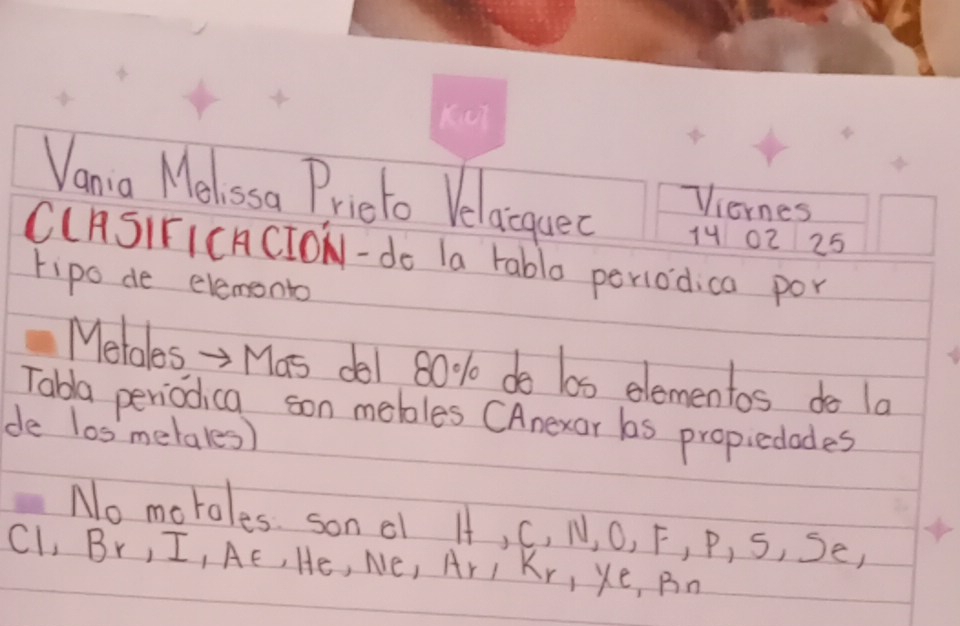 Kiut
Vania Melissa Prieto Velacquec
Viernes
14 02 25
CLASIFICACIÓN - de la tabla periódica por
tipo de elemento
Metales → Mas del 80% de los elementos de la
Tabla periódica son metales (Anexar las propiedades
de los metales)
No metales son el H, C, N, O, F, P, S, Se,
Cl, Br, I, At, He, Ne, Ar, Kr, Xe, Rn